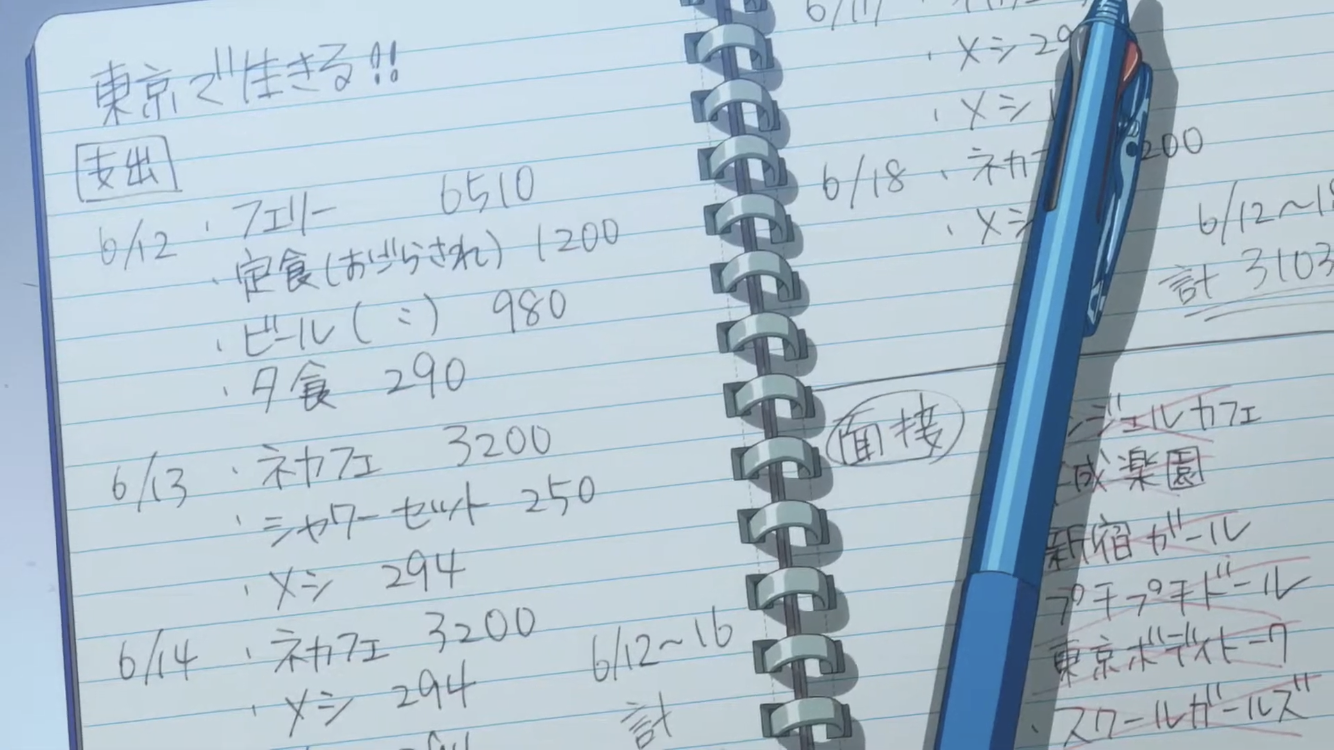 東京で生きる!!
支出
6/12 ・フェリー 6510
・定食(おごらされ) 1200
・ビール(〃) 980
・夕食 290
6/13 ・ネカフェ 3200
・シャワーセット 250
・メシ 294
6/14 ・ネカフェ 3200
・メシ 294
6/12〜16
計
・メシ
・メシ
6/18 ・ネカフ
・メシ
6/12〜18
計 3103
面接
ンジェルカフェ
成楽園
新宿ガール
プチプチドール
東京ボディトーク
・スクールガールズ